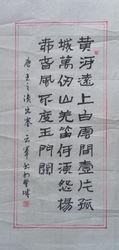 黃河遠上白雲間壹片孤
城萬仞山羌笛何須怨楊
柳春風不度玉門關
唐王之渙出塞